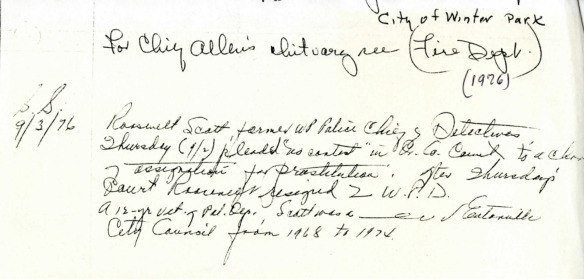 City of Winter Park
For Chief Allen's obituary see (Fire Dept.
(1976)
S.S.
9/3/76
Roosevelt Scott former WP Police Chief of Detectives
Thursday (9/2) pleaded "no contest" in Or. Co. Court to a
of assignation for prostitution. After Thursday's
Court Roosevelt resigned W.P.D.
A 12-yr vet. of Pol. Dep., Scott was a Eatonville
City Council from 1968 to 1974.